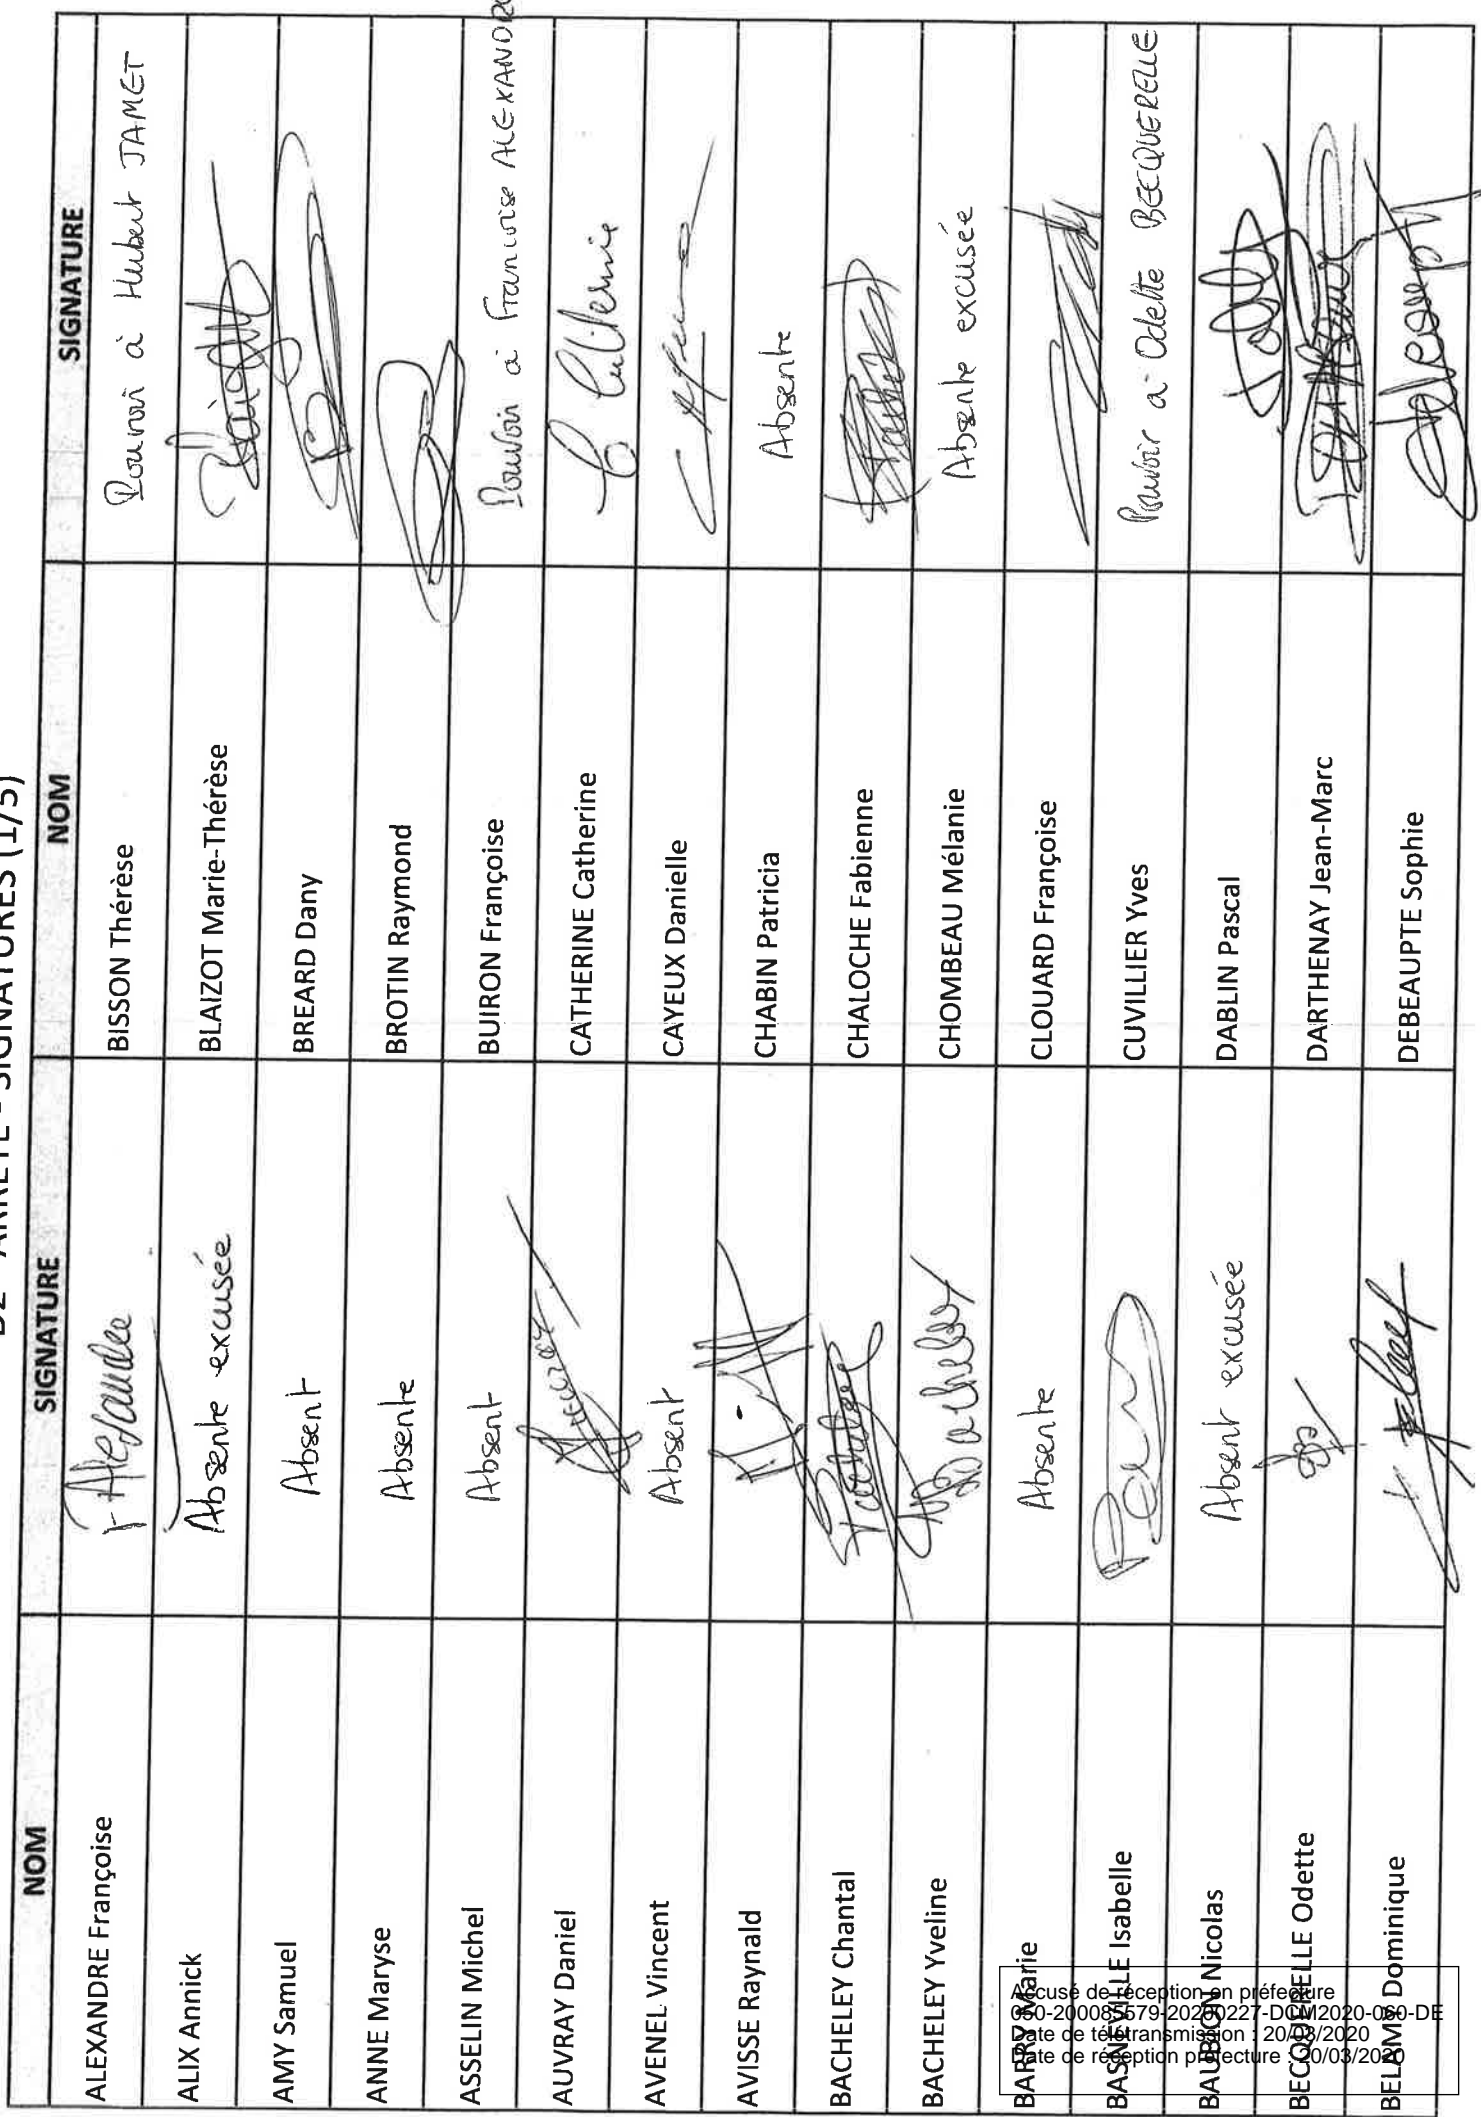 D2 - ARRETE - SIGNATURES (1/5)
NOM SIGNATURE NOM SIGNATURE
ALEXANDRE Françoise F Alexandre BISSON Thérèse Pouvoir à Hubert JAMET
ALIX Annick Absente excusée BLAIZOT Marie-Thérèse
AMY Samuel Absent BREARD Dany
ANNE Maryse Absente BROTIN Raymond
ASSELIN Michel Absent BUIRON Françoise Pouvoir à Francoise ALEXANDRE
AUVRAY Daniel CATHERINE Catherine
AVENEL Vincent Absent CAYEUX Danielle
AVISSE Raynald CHABIN Patricia Absente
BACHELEY Chantal CHALOCHE Fabienne
BACHELEY Yveline CHOMBEAU Mélanie Absente excusée
BARRY Marie Absente CLOUARD Françoise
BASNEVILLE Isabelle CUVILLIER Yves Pouvoir à Odette BECQUERELLE
BAUBION Nicolas Absent excusée DABLIN Pascal
BECQUERELLE Odette DARTHENAY Jean-Marc
BELAMY Dominique DEBEAUPTE Sophie
Accusé de réception en préfecture
050-200085579-20200227-DCM2020-060-DE
Date de télétransmission : 20/03/2020
Date de réception préfecture : 20/03/2020